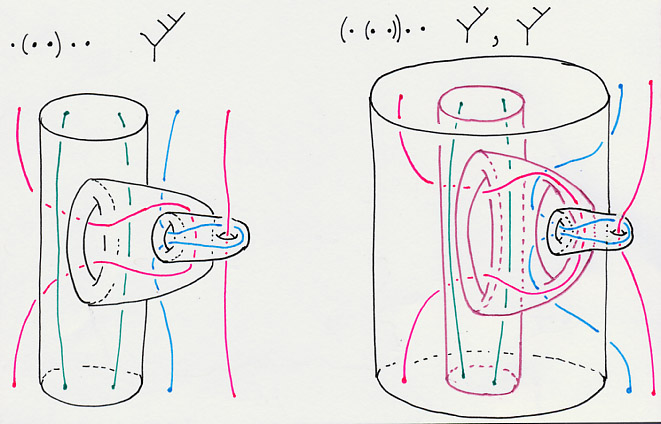 ·(··)··
(·(··))·· ,